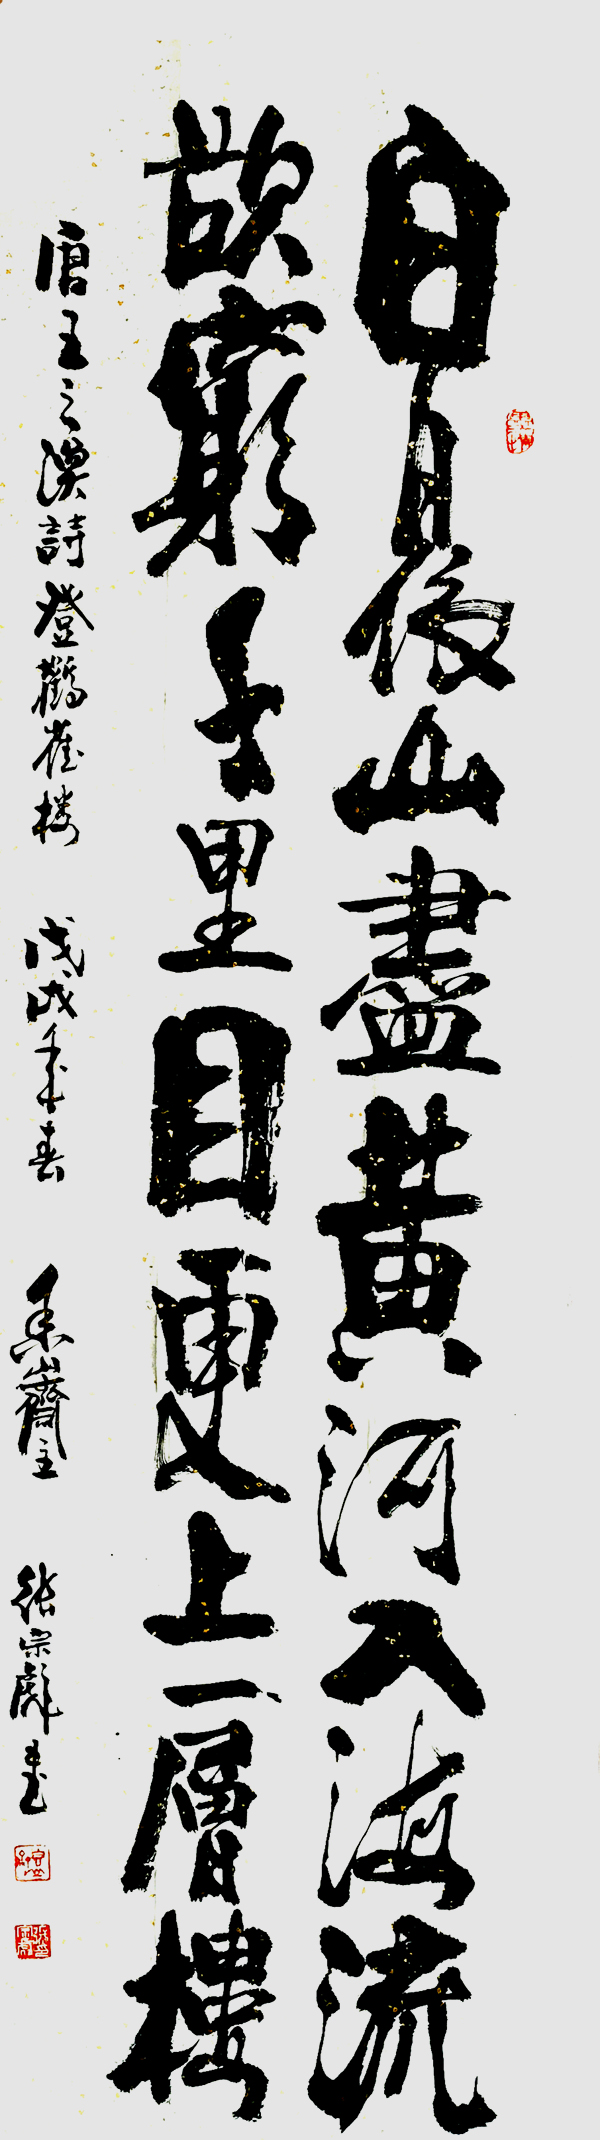 白日依山盡黄河入海流
欲窮千里目更上一層樓
唐王之渙詩登鸛雀楼 戊戌年春 秀山齋主 張宗彪書